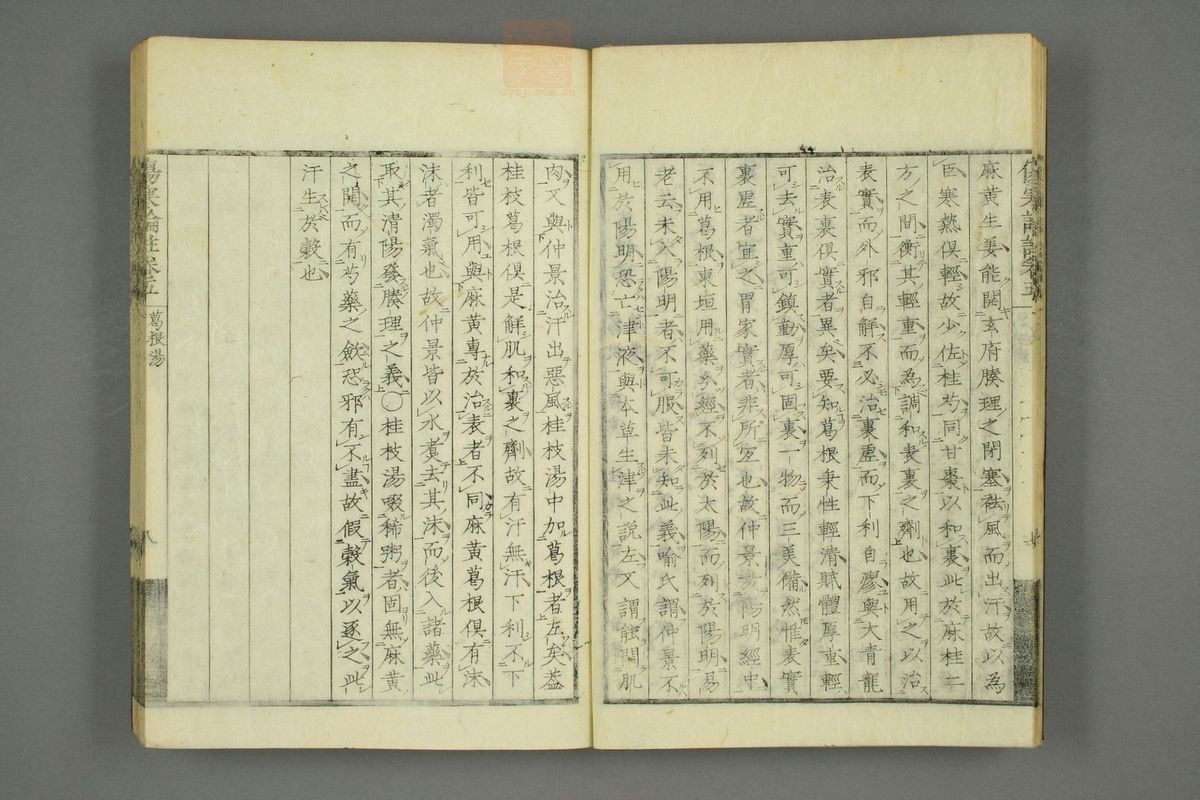 麻黄生姜能開玄府腠理之閉塞祛風而出汗故以為
臣寒熱俱輕故少佐桂芍同甘棗以和裏此於麻桂二
方之間衡其輕重而為調和表裏之劑也故用之以治
表實而外邪自解不必治裏虛而下利自瘳與大青龍
治表裏俱實者異矣要知葛根秉性輕清賦體厚重輕
可去實重可鎮動厚可固裏一物而三美備然惟表實
裏虛者宜之胃家實者非所宜也故仲景於陽明經中
不用葛根東垣用藥分經不列於太陽而列於陽明易
老云未入陽明者不可服皆未知此義喻氏謂仲景不
用於陽明恐亡津液與本草生津之說左又謂能開肌
肉又與仲景治汗出惡風桂枝湯中加葛根者左矣蓋
桂枝葛根俱是解肌和裏之劑故有汗無汗下利不下
利皆可用與麻黄專於治表者不同麻黄葛根俱有沫
沫者濁氣也故仲景皆以水煑去其沫而後入諸藥此
取其清陽發腠理之義〇桂枝湯啜稀粥者固無麻黄
之開而有芍藥之斂恐邪有不盡故假穀氣以逐之此
汗生於穀也
傷寒論註卷五
葛根湯
八